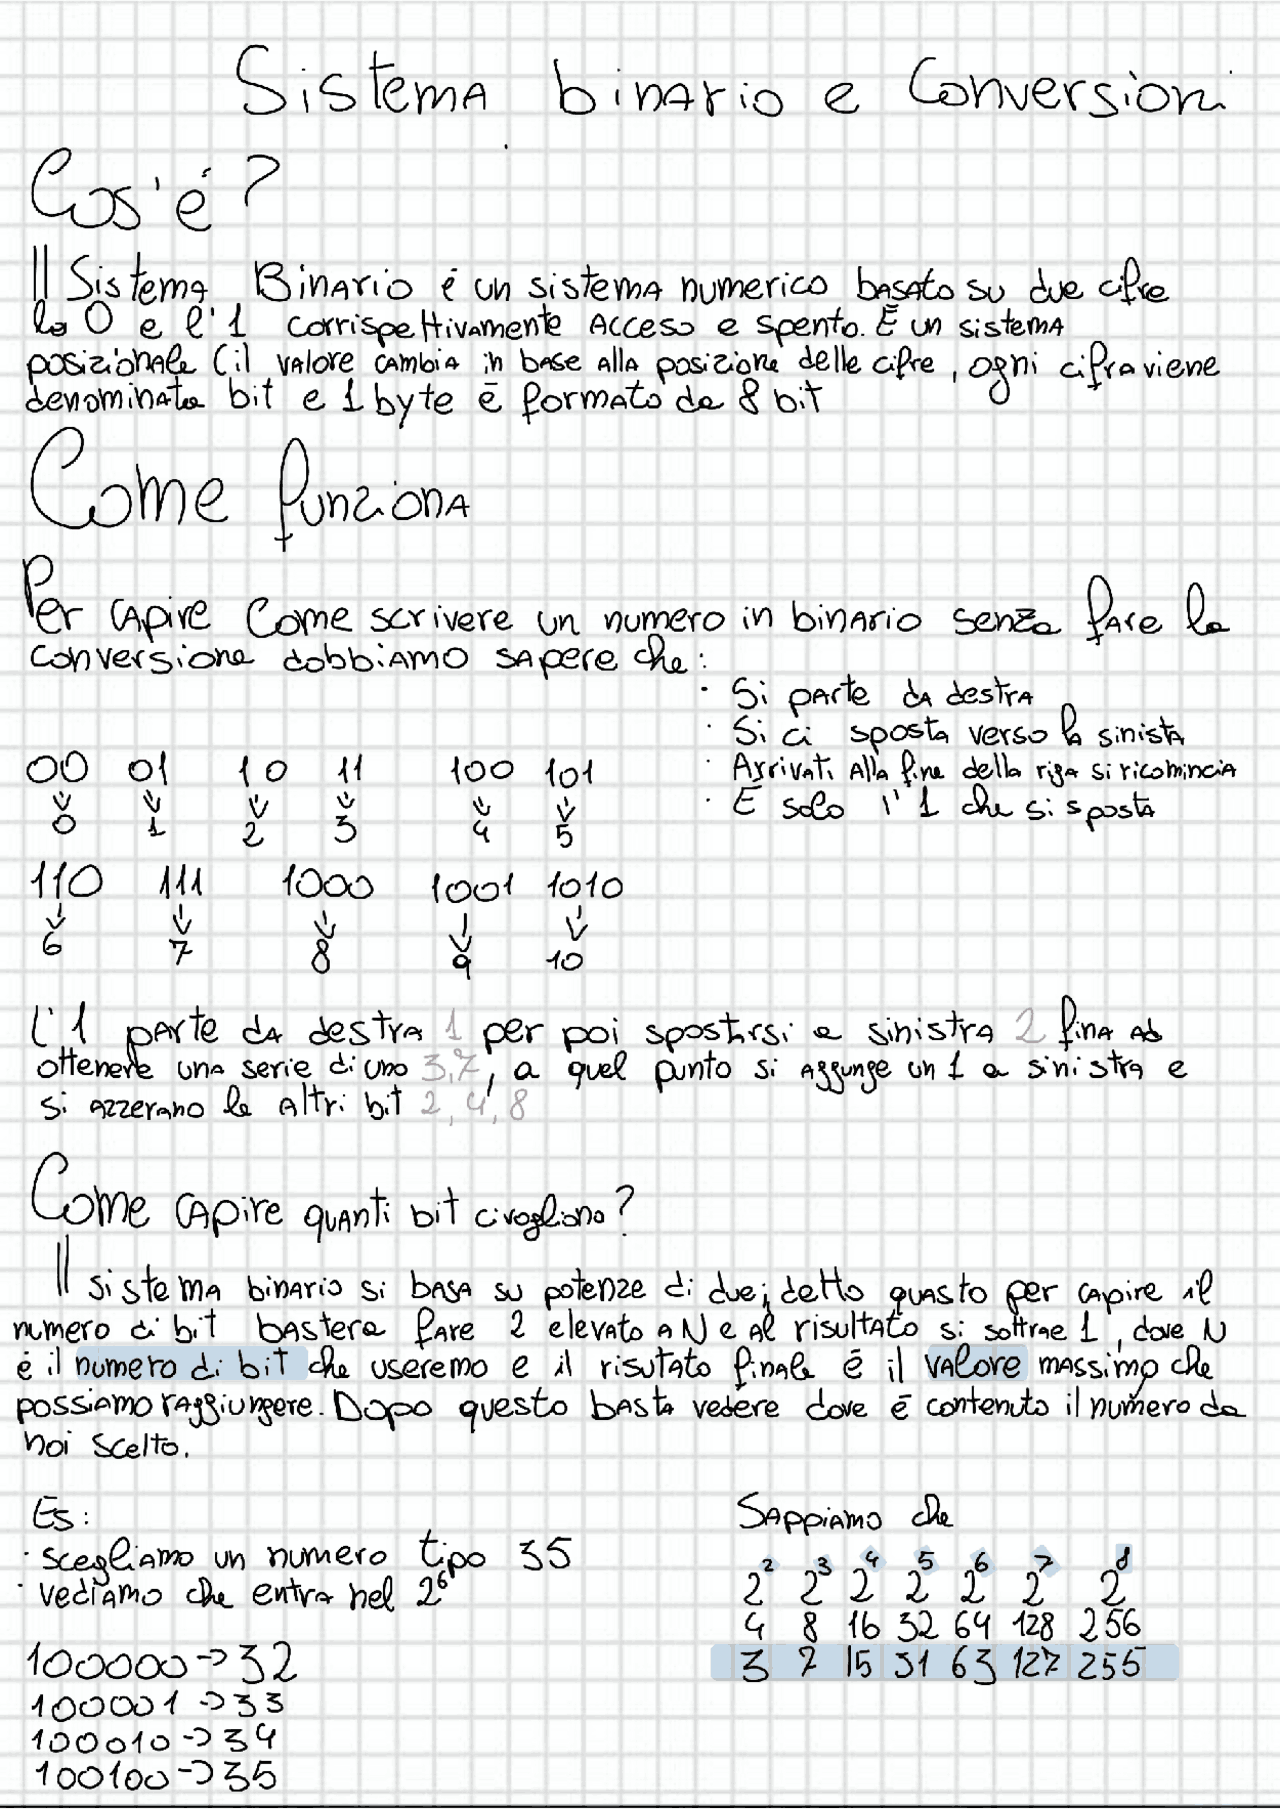 Sistema binario e Conversioni
Cos'é?
Il Sistema Binario é un sistema numerico basato su due cifre
lo 0 e l'1 corrispettivamente Acceso e spento. È un sistema
posizionale (il valore cambia in base alla posizione delle cifre, ogni cifra viene
denominata bit e 1 byte è formato da 8 bit
Come funziona
Per capire Come scrivere un numero in binario senza fare la
conversione dobbiamo sapere che:
· Si parte da destra
· Si ci sposta verso la sinista
· Arrivati alla fine della riga si ricomincia
· È solo l'1 che si sposta
00 01 10 11 100 101
0 1 2 3 4 5
110 111 1000 1001 1010
6 7 8 9 10
L'1 parte da destra 1 per poi spostarsi a sinistra 2 fina ad
ottenere una serie di uno 3,7, a quel punto si aggunge un 1 a sinistra e
si azzerano le altri bit 2, 4, 8
Come capire quanti bit ci vogliono?
Il sistema binario si basa su potenze di due; detto quasto per capire il
numero di bit bastera fare 2 elevato a N e al risultato si sottrae 1, dove N
è il numero di bit che useremo e il risutato finale è il valore massimo che
possiamo raggiungere. Dopo questo basta vedere dove è contenuto il numero da
noi scelto.
Es:
· scegliamo un numero tipo 35
· vediamo che entra nel 2⁶
100000 -> 32
100001 -> 33
100010 -> 34
100100 -> 35
Sappiamo che
2² 2³ 2⁴ 2⁵ 2⁶ 2⁷ 2⁸
4 8 16 32 64 128 256
3 7 15 31 63 127 255